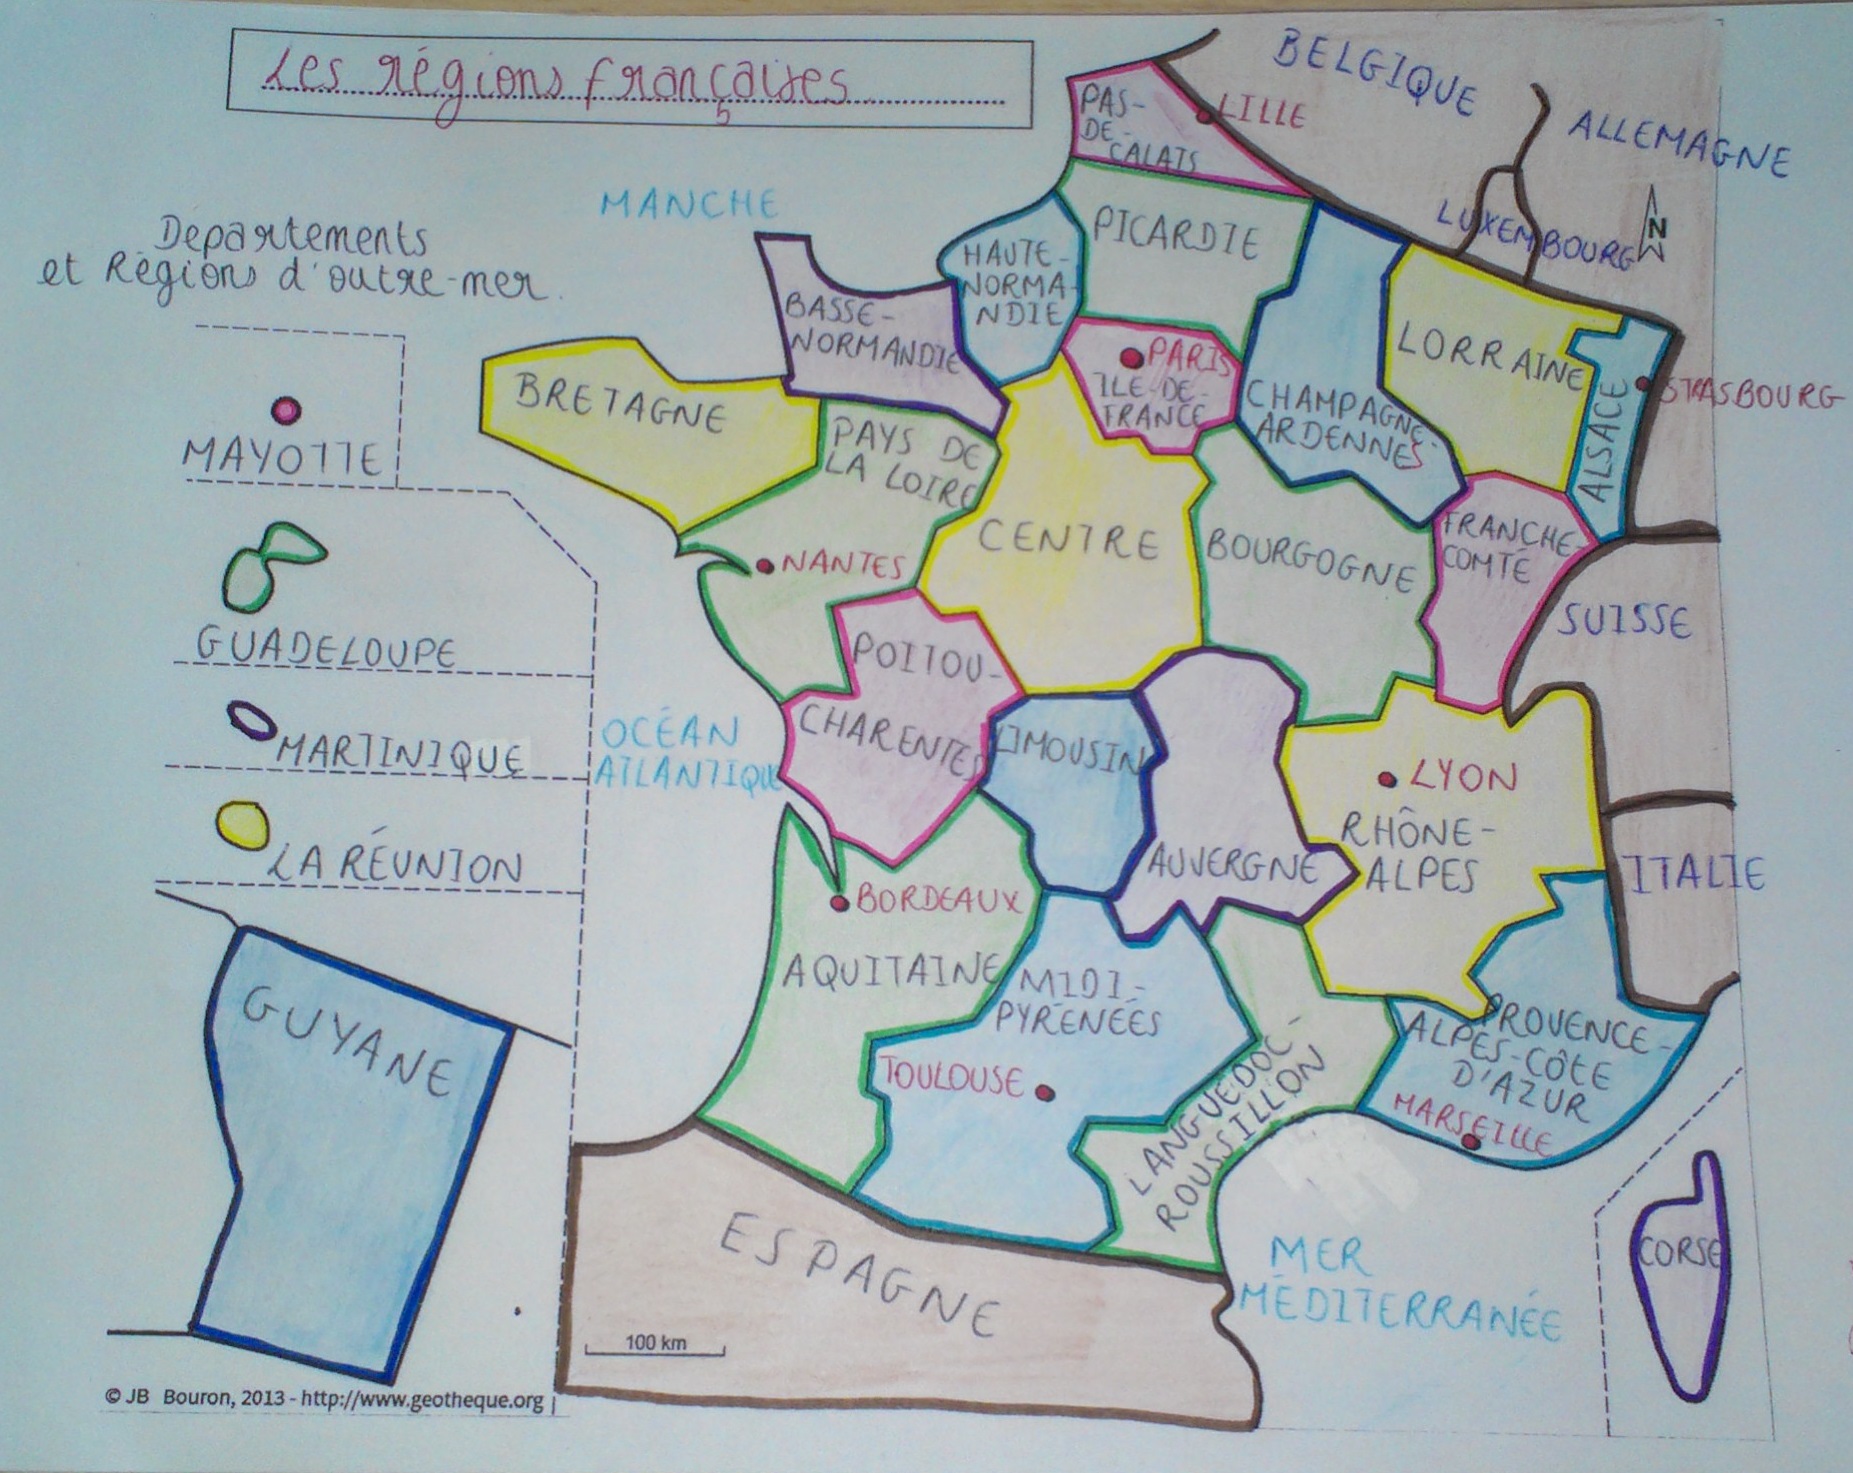 Les régions françaises
BELGIQUE
ALLEMAGNE
LUXEMBOURG
N
PAS-
DE-
CALAIS
LILLE
MANCHE
PICARDIE
HAUTE-
NORMA-
NDIE
BASSE-
NORMANDIE
PARIS
ILE-DE-
FRANCE
CHAMPAGNE-
ARDENNES
LORRAINE
ALSACE
STRASBOURG
BRETAGNE
PAYS DE
LA LOIRE
NANTES
CENTRE
BOURGOGNE
FRANCHE-
COMTÉ
SUISSE
POITOU-
CHARENTES
LIMOUSIN
AUVERGNE
LYON
RHÔNE-
ALPES
ITALIE
OCÉAN
ATLANTIQUE
BORDEAUX
AQUITAINE
MIDI-
PYRÉNÉES
TOULOUSE
LANGUEDOC-
ROUSSILLON
PROVENCE-
ALPES-CÔTE
D'AZUR
MARSEILLE
MER
MÉDITERRANÉE
CORSE
ESPAGNE
100 km
Departements
et Régions d'outre-mer.
MAYOTTE
GUADELOUPE
MARTINIQUE
LA RÉUNION
GUYANE
© JB Bouron, 2013 - http://www.geotheque.org